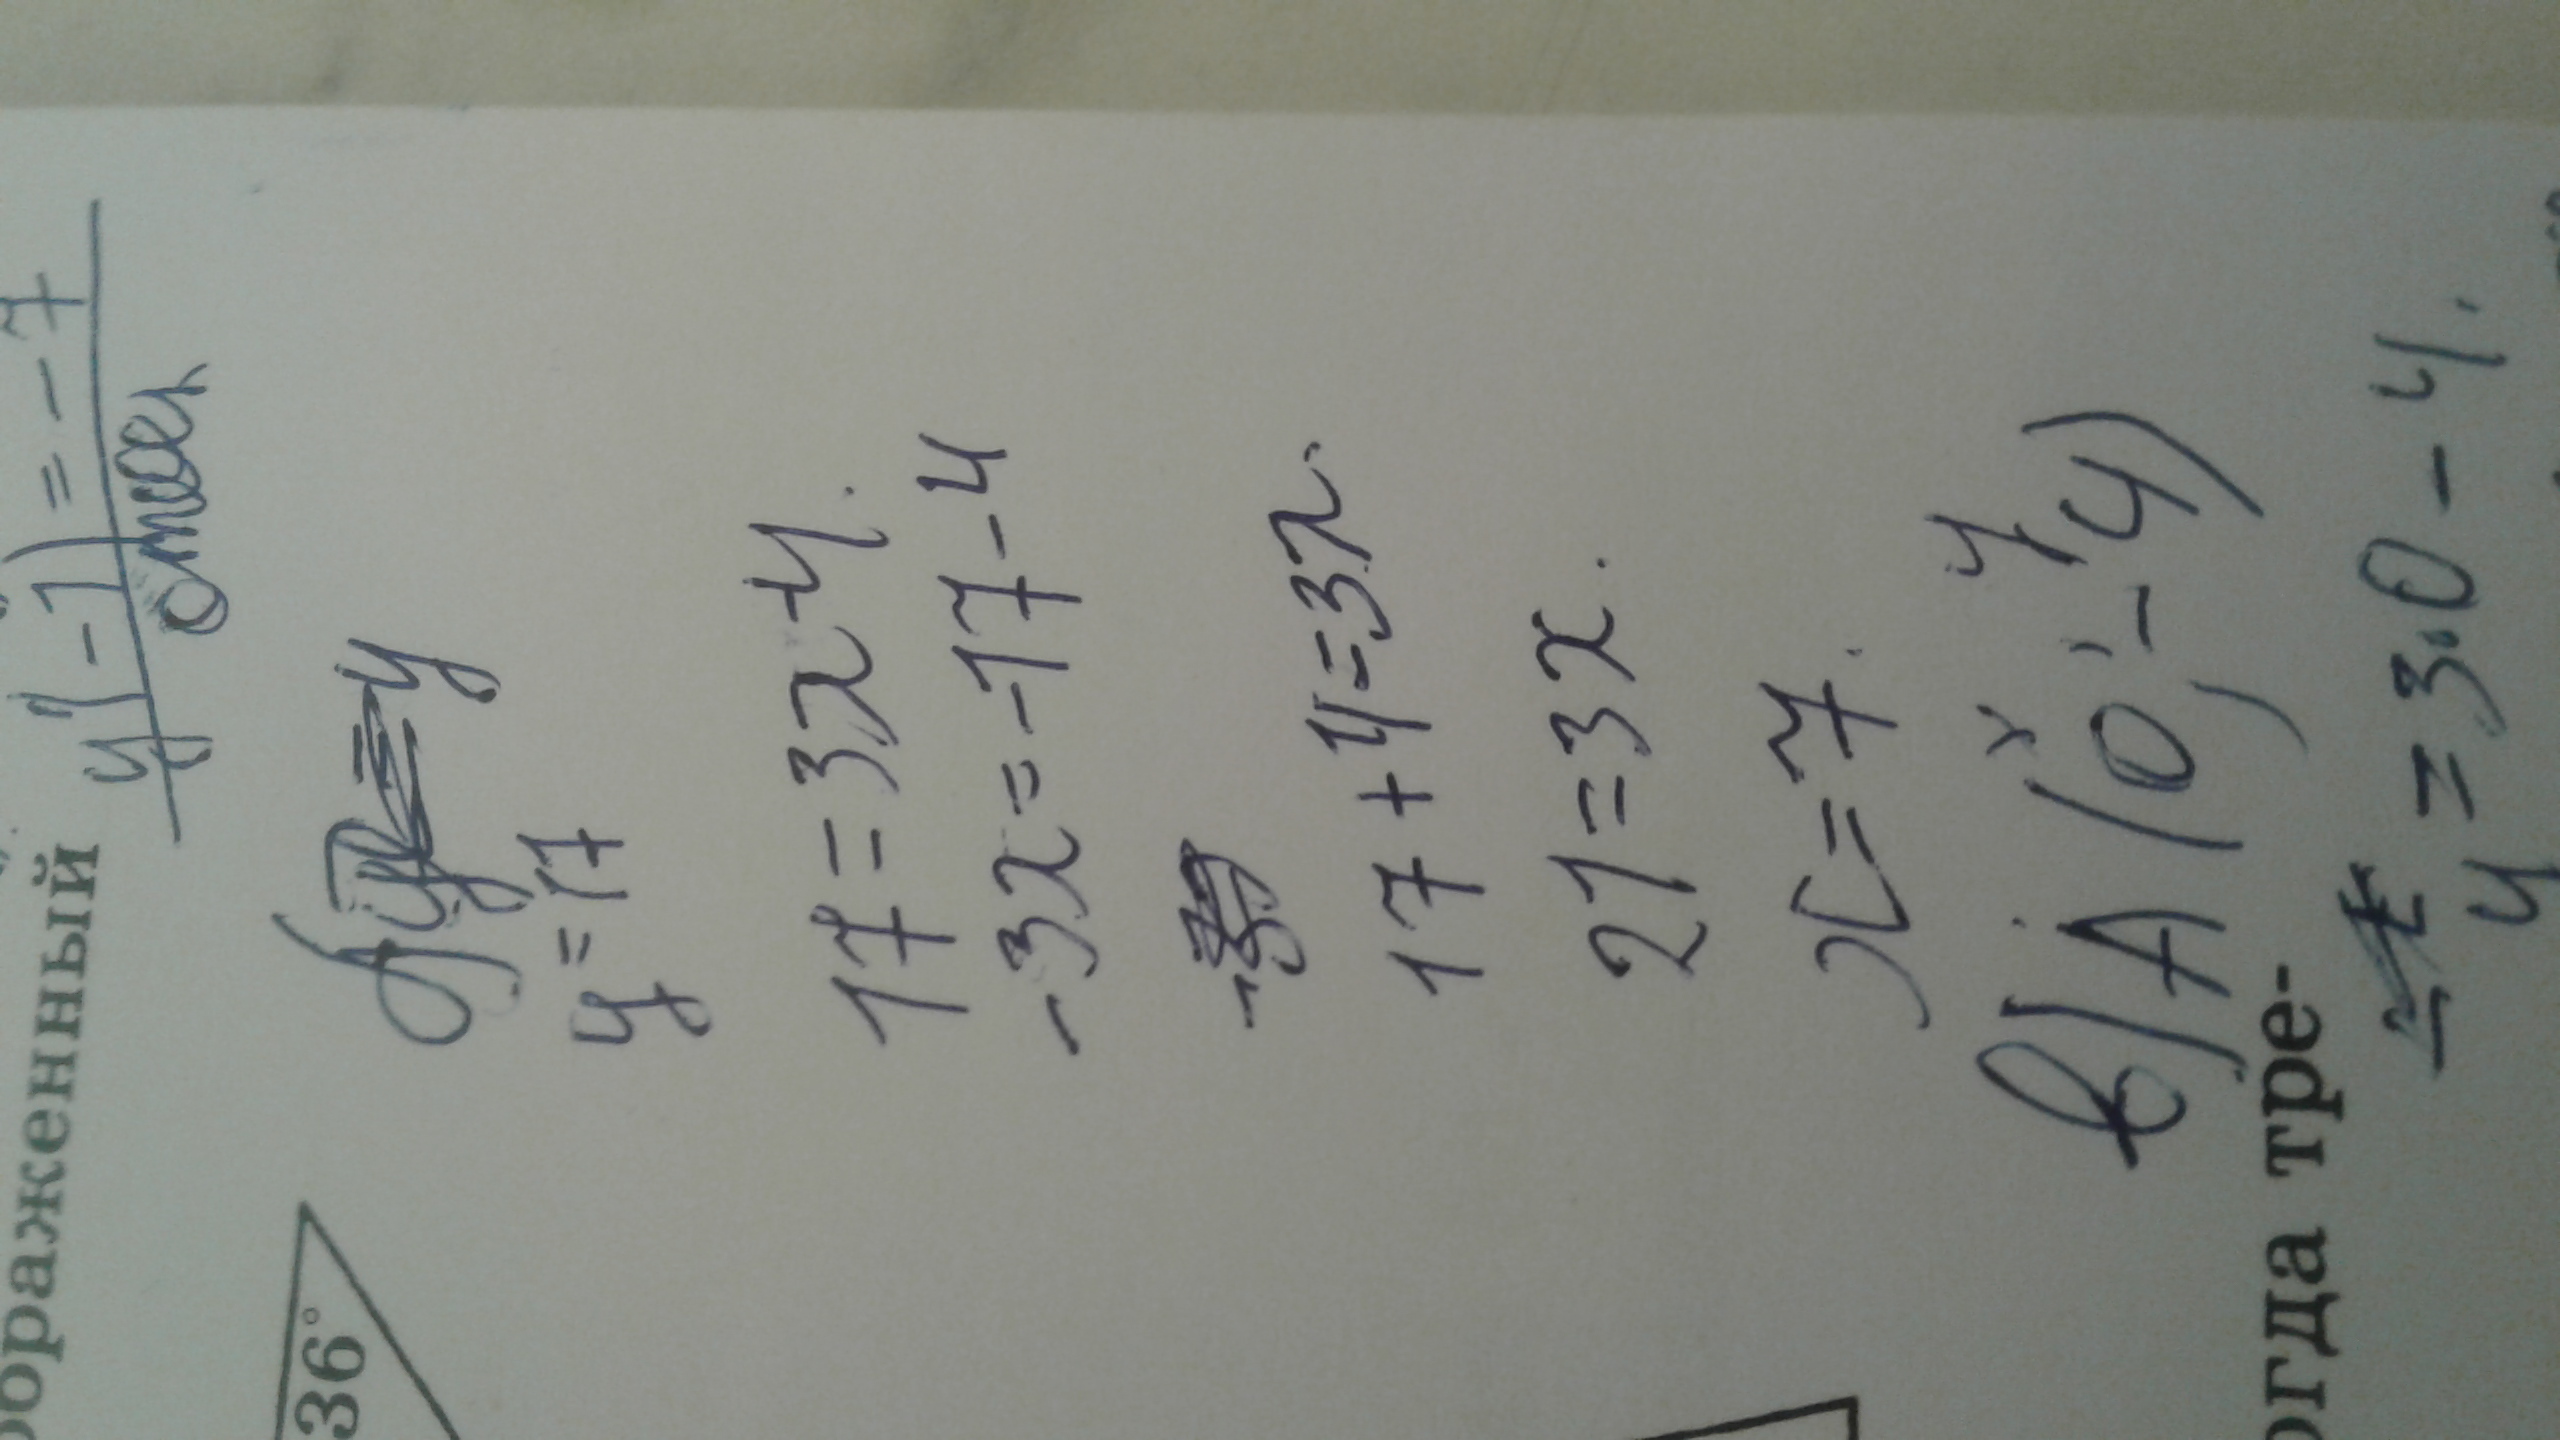 ображенный
36°
y(-1) = -7
ответ
б)
y = 17
17 = 3x-4.
-3x = -17-4
17+4=3x.
21=3x.
x=7.
x y
в) A (0; -4)
y = 3·0-4.
огда тре-